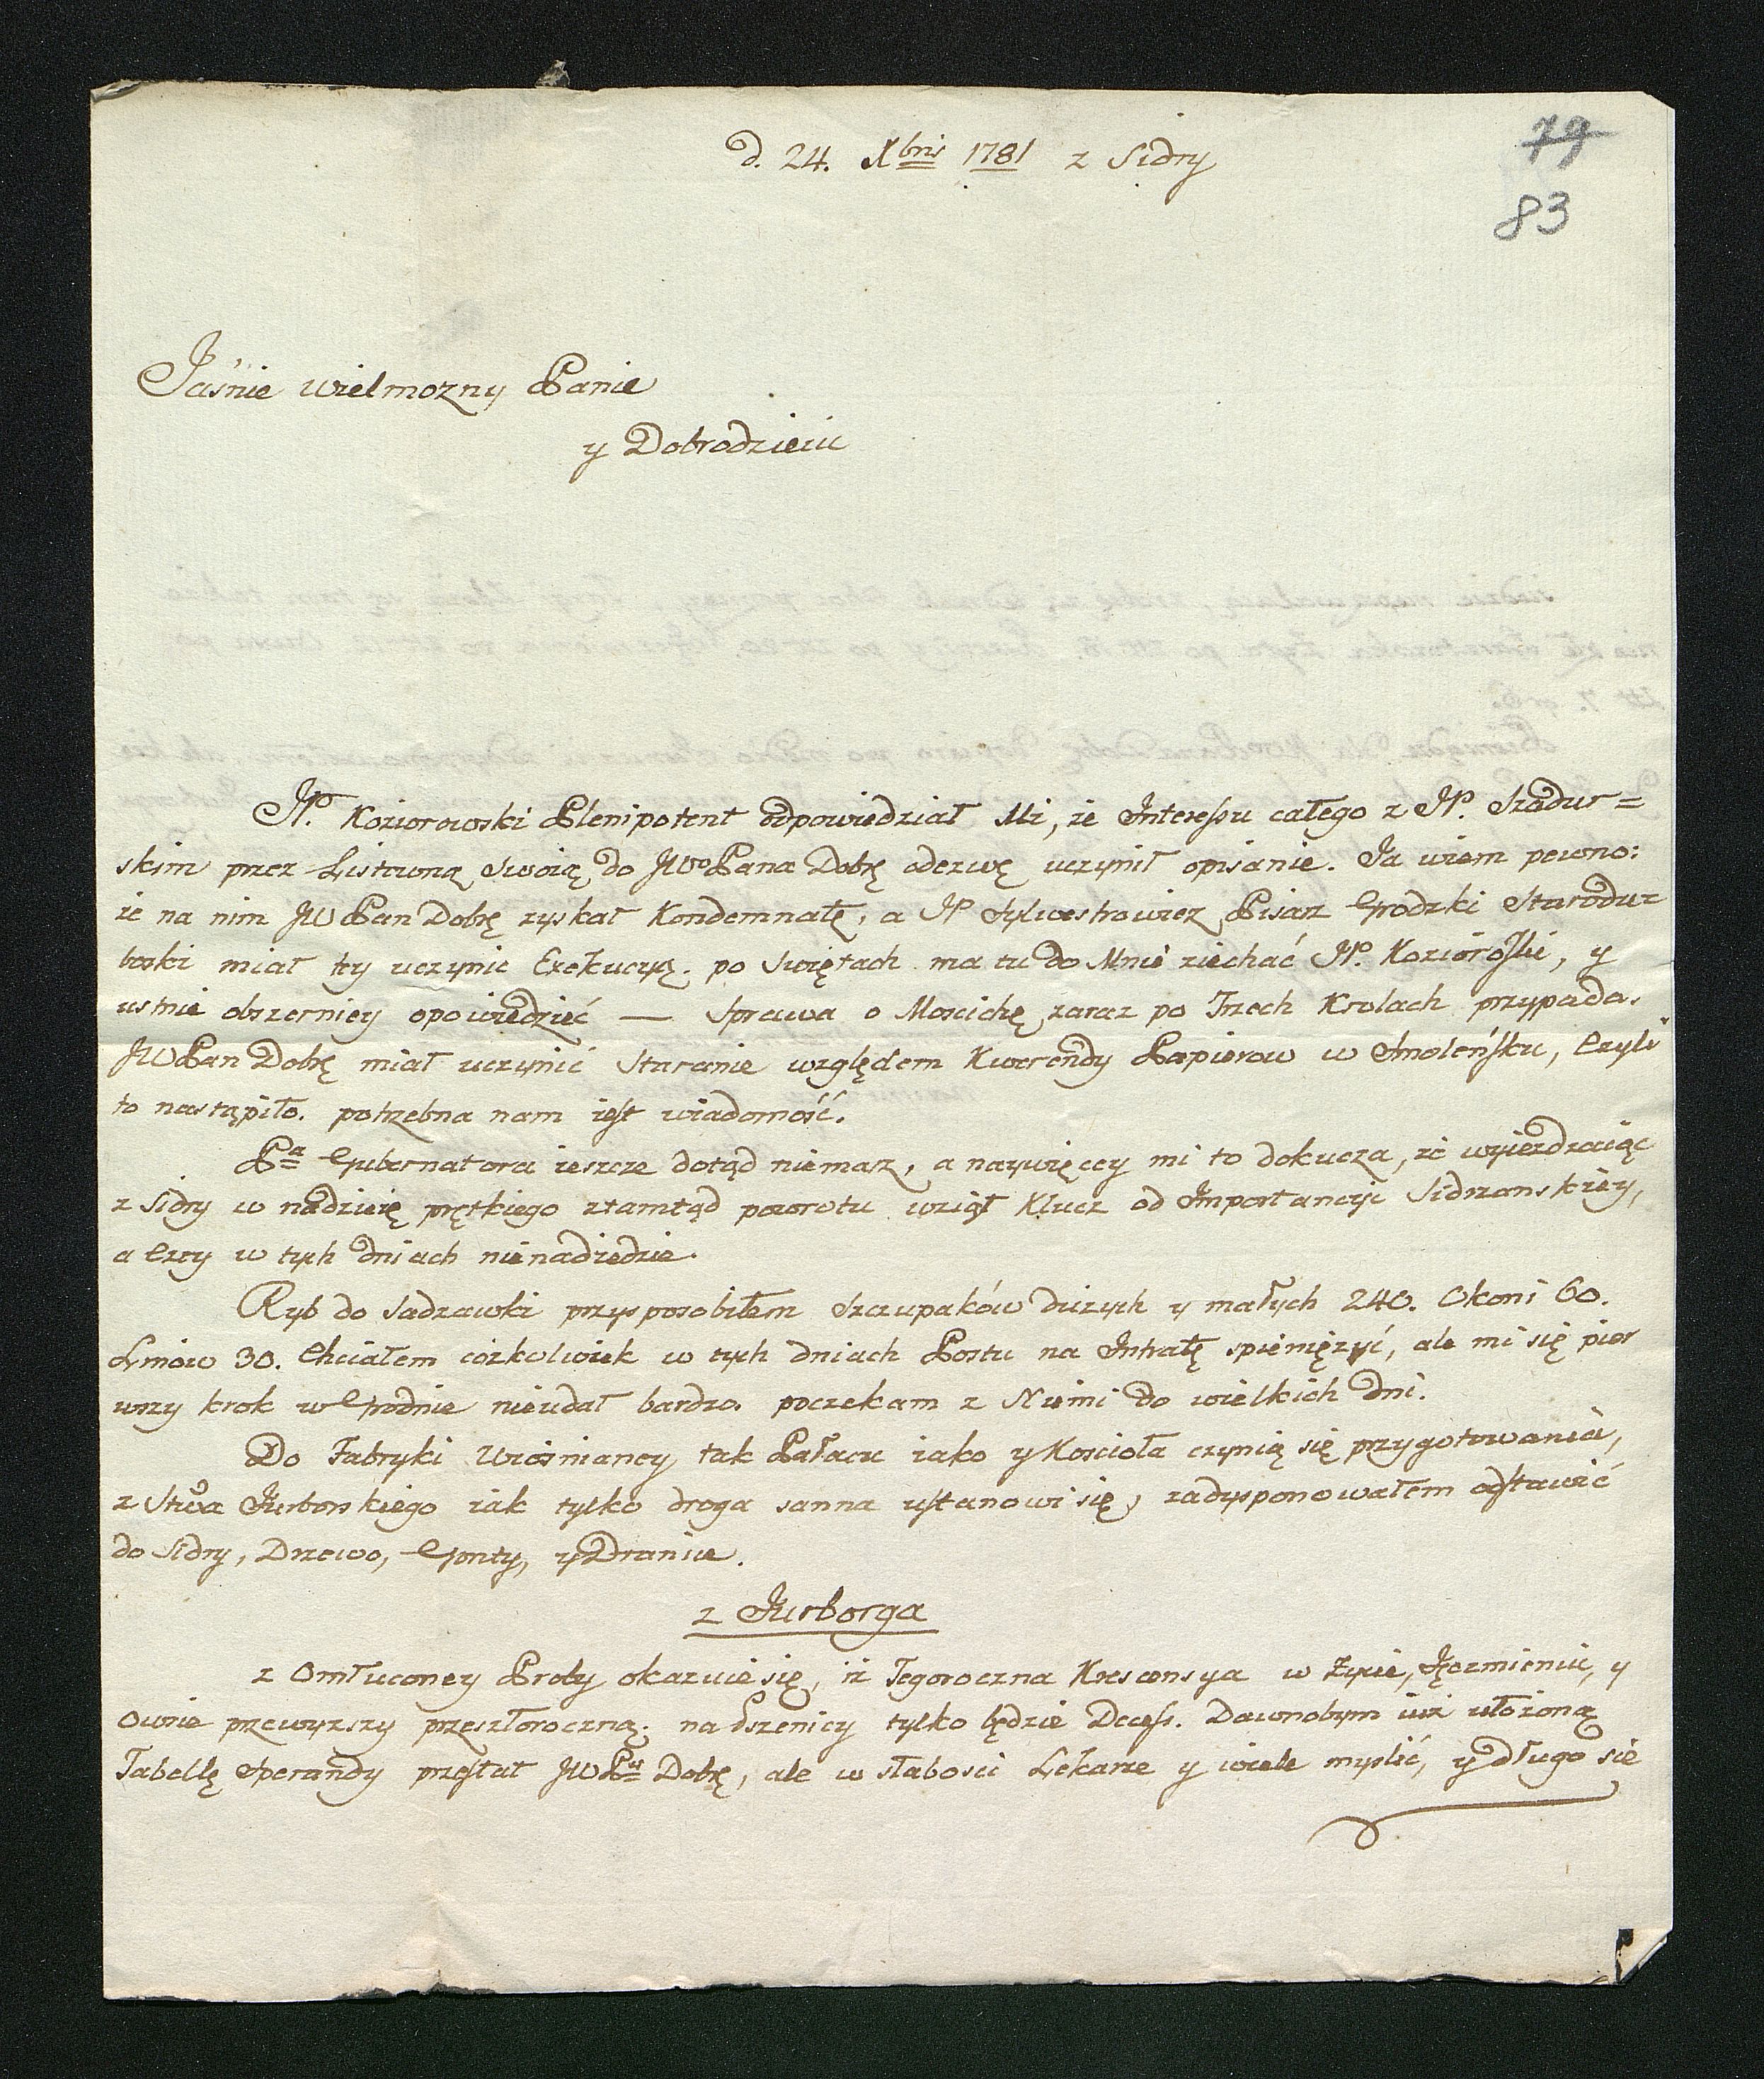 d. 24. Xbris 1781 z Sidry
79
83
Jaśnie Wielmozny Panie
y Dobrodzieiu
JP. Koziorowski Plenipotent odpowiedział Mi, że Interessu całego z JP. Szadur=
skim przez Listowną Swoią do JWo Pana Dobrę odezwę uczynił opisanie. Ja wiem pewno:
że na nim JW Pan Dobrę zyskał Kondemnatę, a JP Sylwestrowicz Pisarz Grodzki Starodu=
boski miał tey uczynic Exekucyą. po Swiętach ma tu do Mnie ziechać JP. Kozioroski, y
ustnie obszerniey opowiedzieć — Sprawa o Moscichę zaraz po Trzech Krolach przypada.
JW Pan Dobrę miał uczynić Staranie względem Kwerendy Papierow w Smoleńsku, Czyli
to nastąpiło. potrzebna nam iest wiadomość.
Pa Gubernatora ieszcze dotąd niemasz, a naywięcey mi to dokucza, że wyieżdzaiąc
z Sidry w nadzieię prętkiego ztamtąd powrotu wziął Klucz od Importancyi Sidrzanskiey,
a Czy w tych dniach nienadiedzie.
Ryb do Sadzawki przysposobiłem Szczupaków dużych y małych 240. Okoni 60.
Linów 30. Chciałem cożkolwiek w tych dniach Postu na Intratę spieniężyć, ale mi się pier
wszy krok w Grodnie nieudał bardzo. poczekam z Niemi do wielkich dni.
Do Fabryki Wiosnianey tak Pałacu iako y Koscioła czynią się przygotowania,
z Stwa Jurborskiego iak tylko droga sanna ustanowi się, zadysponowałem odstawić
do Sidry, Drzewo, Gonty, y Dranice.
z Jurborga
z Omłuconey Proby okazuie się, iż Tegoroczna Krescensya w Życie, Jęczmieniu, y
Owsie przewyższy przeszłoroczną. na Pszenicy tylko będzie Decess. Dawnobym iuż ułożoną
Tabellę Sperandy przesłał JW Pu Dobrę, ale w słabosci Lekarze y wiele myslić, y długo sie